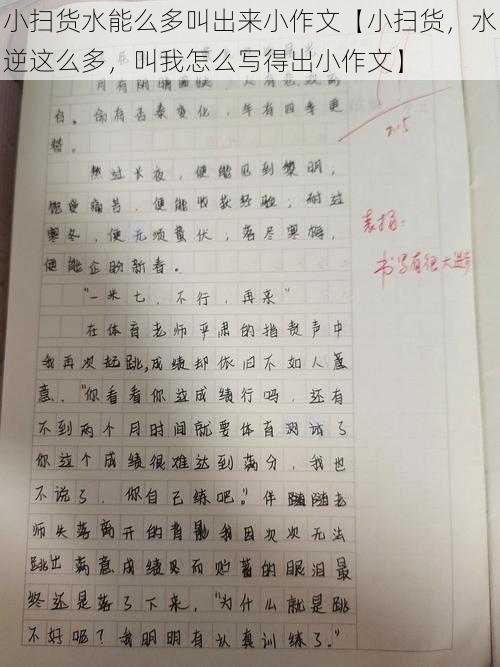 小扫货水能么多叫出来小作文【小扫货，水
逆这么多，叫我怎么写得出小作文】
月有阴晴圆缺，人有悲欢
合。命有否泰变化，年有四季更
替。
熬过长夜，便能见到黎明，
饱受痛苦，便能收获经验，耐过
寒冬，便无须蛰伏，落尽寒梅，
便能企盼新春。
"一米七，不行，再来"
在体育老师严肃的指责声中
我再次起跳，成绩却依旧不如人意
意。"你看看你这成绩行吗，还有
不到两个月时间就要体育测试了
你这个成绩很难达到满分，我也
不说了，你自己练吧。"伴随随老
师失落离开的背影我因次次无法
跳出满意成绩而贮蓄的眼泪最
终还是落了下来，"为什么就是跳
不好呢？我明明有认真训练了。"
表扬：
书写有很大进步